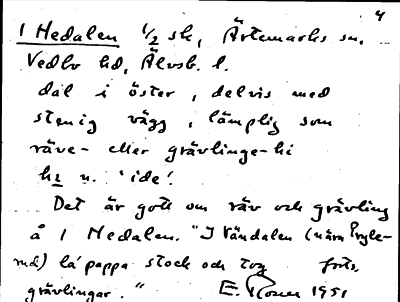 4
I Hedalen ½ sk, Ärtemarks sn.
Vedbo hd, Älvsb. l.
dal i öster, delvis med
stenig vägg, lämplig som
räve- eller grävlinge-hi
hi n. 'ide'.
Det är gott om räv och grävling
å I Hedalen. "I Vändalen (nära
) la' pappa stock och tog forts.
grävlingar." E. Rosen 1951